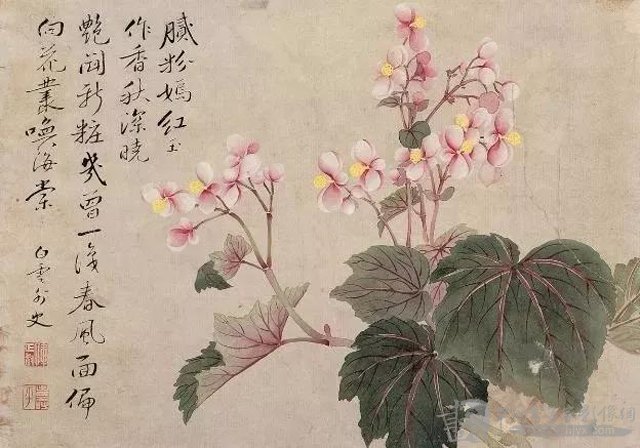 膩粉嫣紅玉
作香秋深曉
艷鬪新粧幾曾一識春風面偏
向花叢喚海棠
白雲外史